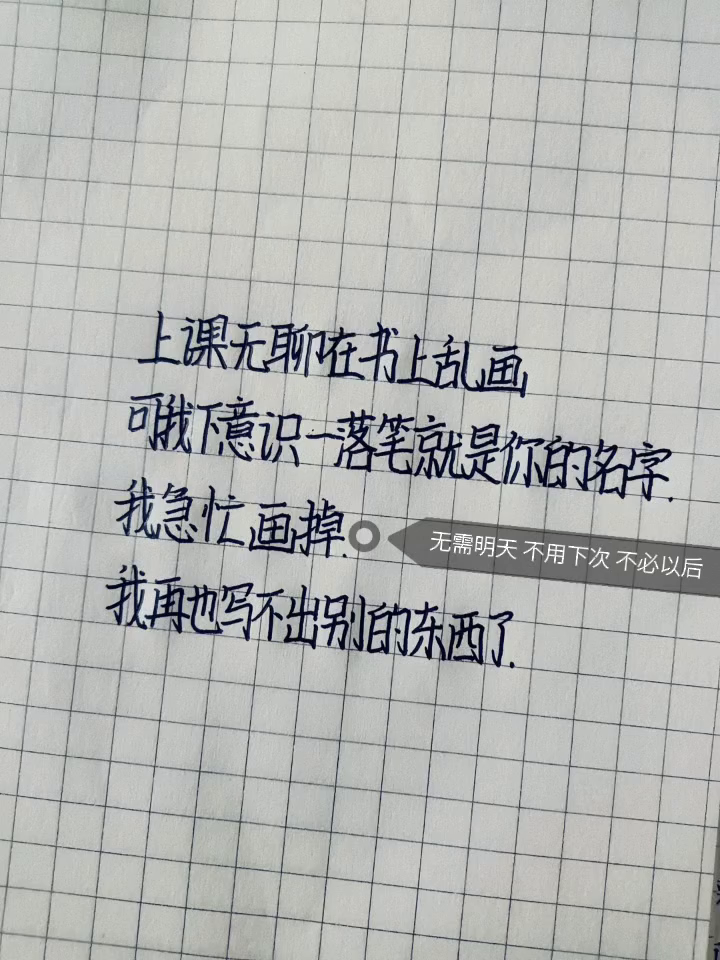 上课无聊在书上乱画
可我下意识一落笔就是你的名字.
我急忙画掉.
无需明天 不用下次 不必以后
我再也写不出别的东西了.